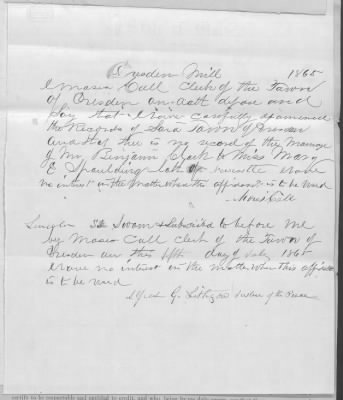 Dresden Mill 1865
I Moses Call Clerk of the Town
of Dresden on oath depose and
Say that I have carefully examined
the Records of Said Town of Dresden
and that there is no record of the Marriage
of Mr Benjamin Clark to Miss Mary
E Spaulding I have
no intrest in the matter when this affidavit is to be used
Moses Call
Lincoln SS Sworn & Subscribed to before me
by Moses Call Clerk of the Town of
Dresden on this fifth day of July 1865
I have no intrest in the matter when this affidavit
is to be used
Alfred G. Lithgow Justice of the Peace